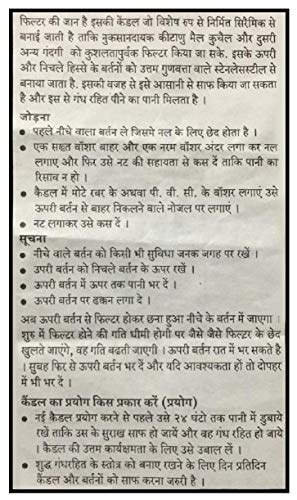 फिल्टर की जान है इसकी कैंडल जो विशेष रुप से निर्मित सिरैमिक से
बनाई जाती है ताकि नुकसानदायक कीटाणु मैल कुचैल और दुसरी
अन्य गंदगी को कुशलतापुर्वक फिल्टर किया जा सके. इसके ऊपरी
और निचले हिस्से के बर्तनों को उत्तम गुणवत्ता वाले स्टेनलेसस्टील से
बनाया जाता है. इसकी वजह से इसे आसानी से साफ किया जा सकता
है और इस से गंध रहित पीने का पानी मिलता है ।
जोड़ना
• पहले नीचे वाला बर्तन ले जिसमे नल के लिए छेद होता है ।
• एक सख्त वॉशर बाहर और एक नरम वॉशर अंदर लगा कर नल
लगाए और फिर उसे नट की सहायता से कस दें ताकि पानी का
रिसाव न हो ।
• कैडल में मोटे रबर के अथवा पी. वी. सी. के वॉशर लगाएं उसे
ऊपरी बर्तन से बाहर निकलने वाले नोजल पर लगाएं ।
• नट लगाकर उसे कस दें ।
सूचना
• नीचे वाले बर्तन को किसी भी सुविधा जनक जगह पर रखें ।
• उपरी बर्तन को निचले बर्तन के ऊपर रखें ।
• ऊपरी बर्तन में ऊपर तक पानी भर दें ।
• ऊपरी बर्तन पर ढक्कन लगा दे ।
अब ऊपरी बर्तन से फिल्टर होकर छना हुआ नीचे के बर्तन में जाएगा ।
शुरु में फिल्टर होने की गति धीमी होगी पर जैसे जैसे फिल्टर के छेद
खुलते जाएंगे, वह गति बढती जाएगी । ऊपरी बर्तन रात में भर सकते है
। सुबह फिर से ऊपरी बर्तन भर दें और यदि आवश्यकता हों तो दोपहर
में भी भर दें ।
कैंडल का प्रयोग किस प्रकार करें (प्रयोग)
• नई कैडल प्रयोग करने से पहले उसे २४ घंटो तक पानी में डुबाये
रखें ताकि उस के सुराख साफ हो जायें और वह गंध रहित हो जाये
। कैडल की उत्तम कार्यक्षमता के लिए उसे उबाल लें ।
• शुद्ध गंधरहित के स्तोत्र को बनाए रखने के लिए दिन प्रतिदिन
कैंडल और बर्तनों को साफ करना जरुरी है ।